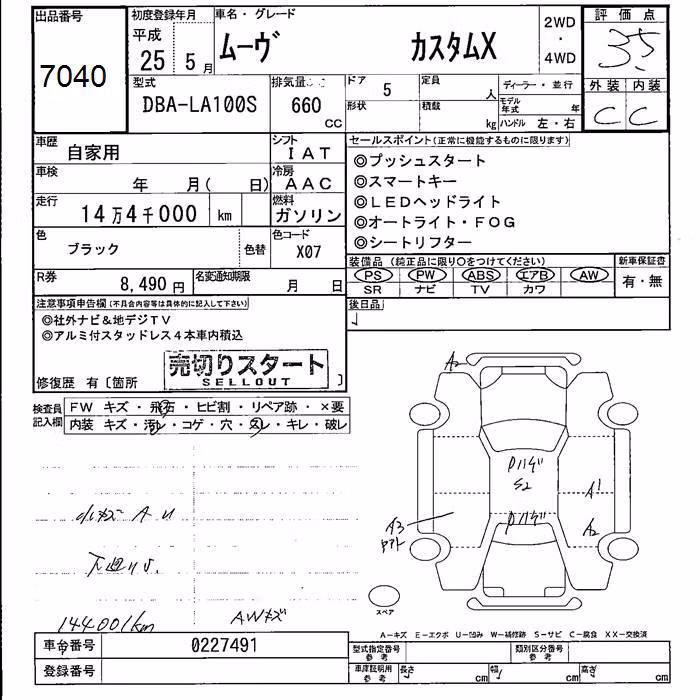 出品番号 初度登録年月 車名・グレード 2WD 評価点
7040 平成 25年 5月 ムーヴ カスタムX ・ 3.5
4WD
型式 排気量 ドア 5 定員 人 ディーラー・並行 外装 内装
DBA-LA100S 660 cc 形状 積載 kg モデル年式 年 C C
ハンドル 左・右
車歴 自家用 シフト IAT セールスポイント(正常に機能するものに限ります)
◎プッシュスタート
車検 年 月( 日) 冷房 AAC ◎スマートキー
走行 14万4千000 km 燃料 ガソリン ◎LEDヘッドライト
◎オートライト・FOG
色 ブラック 色替 色コード X07 ◎シートリフター
装備品 (純正品に限り○をつけてください) 新車保証書
R券 8,490円 名変通知期限 月 日 PS PW ABS エアB AW 有・無
SR ナビ TV カワ
注意事項申告欄(不具合内容等は具体的に記入して下さい) 後日品
◎社外ナビ&地デジTV
◎アルミ付スタッドレス4本車内積込
売切りスタート
SELLOUT
修復歴 有〔箇所 〕
検査員記入欄 FW キズ・飛石・ヒビ割・リペア跡・×要
内装 キズ・汚レ・コゲ・穴・スレ・キレ・破レ
A2
Pハゲ
S2
A1
Pハゲ
小キズ A U
A3
A2
下廻りサビ
スペア
144001km AWキズ
A-キズ E-エクボ U-凹み W-補修跡 S-サビ C-腐食 XX-交換済
車台番号 0227491 型式指定番号 参考 類別区分番号 参考
登録番号 車庫証明用 参考 長さ cm 幅 cm 高さ cm